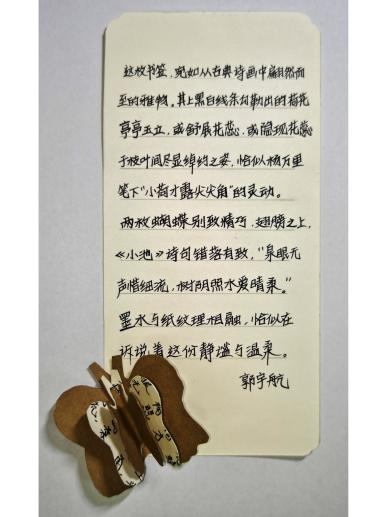 这枚书签,宛如从古典诗画中翩然而
至的雅物。其上黑白线条勾勒出的梅花
亭亭玉立,或舒展花蕊,或隐现花蕊
于枝叶间尽显绰约之姿,恰似杨万里
笔下“小荷才露尖尖角”的灵动。
两枚蝴蝶别致精巧,翅膀之上,
《小池》诗句错落有致,“泉眼无
声惜细流,树阴照水爱晴柔。”
墨水与纸纹理相融,恰似在
诉说着这份静谧与温柔。
郭宇航